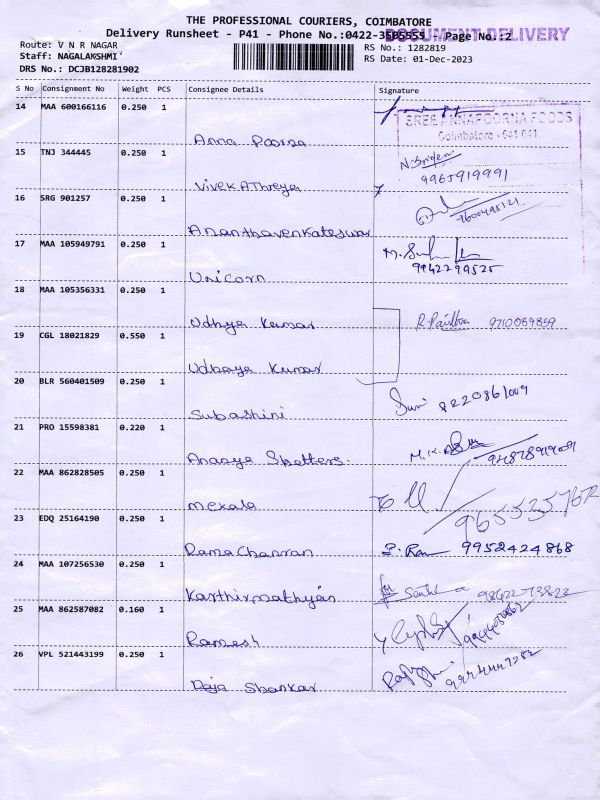 THE PROFESSIONAL COURIERS, COIMBATORE
Delivery Runsheet - P41 - Phone No.:0422-3505555 - Page No.:2
DOCUMENT DELIVERY
Route: V N R NAGAR
RS No.: 1282819
Staff: NAGALAKSHMI
RS Date: 01-Dec-2023
DRS No.: DCJB128281902
S No Consignment No Weight PCS Consignee Details Signature
14 MAA 600166116 0.250 1
SREE ANNAPOORNA FOODS
Coimbatore - 641 041
Anna Poorna
15 TNJ 344445 0.250 1
9965919991
Vivek Athreya
16 SRG 901257 0.250 1
Ananthavenkateswar
17 MAA 105949791 0.250 1
9942299525
Unicorn
18 MAA 105356331 0.250 1
Udhya Kumar
9710059859
19 CGL 18021829 0.550 1
Udhaya Kumar
20 BLR 560401509 0.250 1
8220861009
Subashini
21 PRO 15598381 0.220 1
Ananya Shelters
22 MAA 862828505 0.250 1
Mekala
23 EDQ 25164190 0.250 1
Rama Chanran
9952424868
24 MAA 107256530 0.250 1
Karthirmathyan
25 MAA 862587082 0.160 1
Ramesh
26 VPL 521443199 0.250 1
Raja Shankar